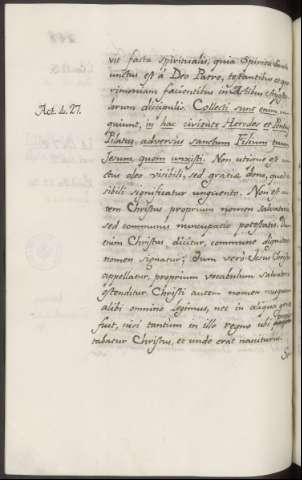 vit facta Spiritualis, quia Spiritu Sancto
unctus est à Deo Patre, testantibus et que-
rimoniam facientibus in Actibus Aposto-
lorum discipulis. Collecti sunt enim, in-
Act. 4. 27.
quiunt, in hac civitate Herodes et Pontius
Pilatus, adversus sanctum Filium tuum
Jesum quem unxisti. Non utique est un-
ctus oleo visibili, sed gratiæ dono, quod vi-
sibili significatur unguento. Non est au-
tem Christus proprium nomen Salvatoris
sed communis nuncupatio potestatis. Dum
enim Christus dicitur, commune dignitatis
nomen signatur; dum verò Jesus Christus
appellatur, proprium vocabulum Salvatoris
ostenditur. Christi autem nomen nusquam
alibi omnino legimus, nec in aliqua gente
fuit, nisi tantum in illo regno ubi
tabatur Christus, et unde erat naciturus.